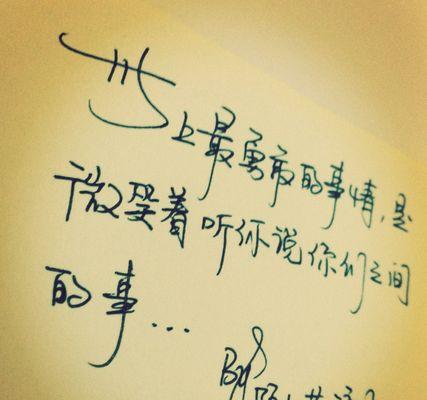 世上最勇敢的事情，是
微笑着听你说你们之间
的事...
By